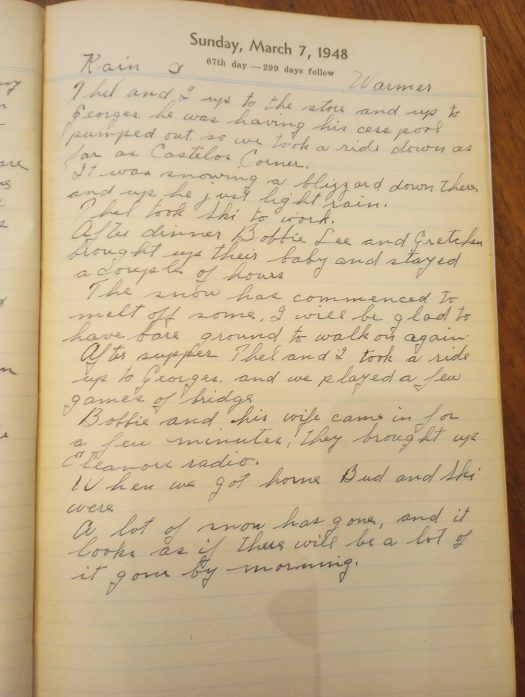 Sunday, March 7, 1948
67th day — 299 days follow
Rain & Warmer
Thel and I up to the store and up to
Georges. he was having his cess pool
pumped out so we took a ride down as
far as Castelos Corner.
It was snowing a blizzard down there
and up he just light rain.
Thel took Ski to work.
After dinner Bobbie Lee and Gretchen
brought up their baby and stayed
a couple of hours
The snow has commenced to
melt off some, I will be glad to
have bare ground to walk on again.
After supper Thel and I took a ride
up to Georges. and we played a few
games of bridge
Bobbie and his wife came in for
a few minutes, they brought up
Eleanors radio.
When we got home Bud and Ski
were
A lot of snow has gone, and it
looks as if there will be a lot of
it gone by morning.